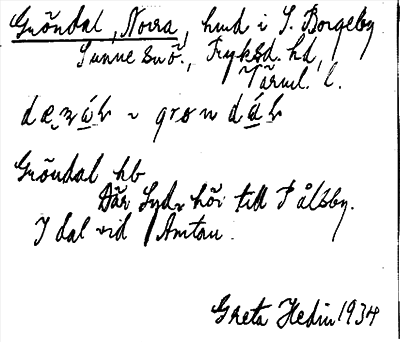 Gröndal, Norra, hmd i S. Borgeby
Sunne snö., Fryksd. hd,
Värml. l.
Gröndal hb
Där Syd hör till Pålsby.
I dal vid Amtan.
Greta Hedin 1934